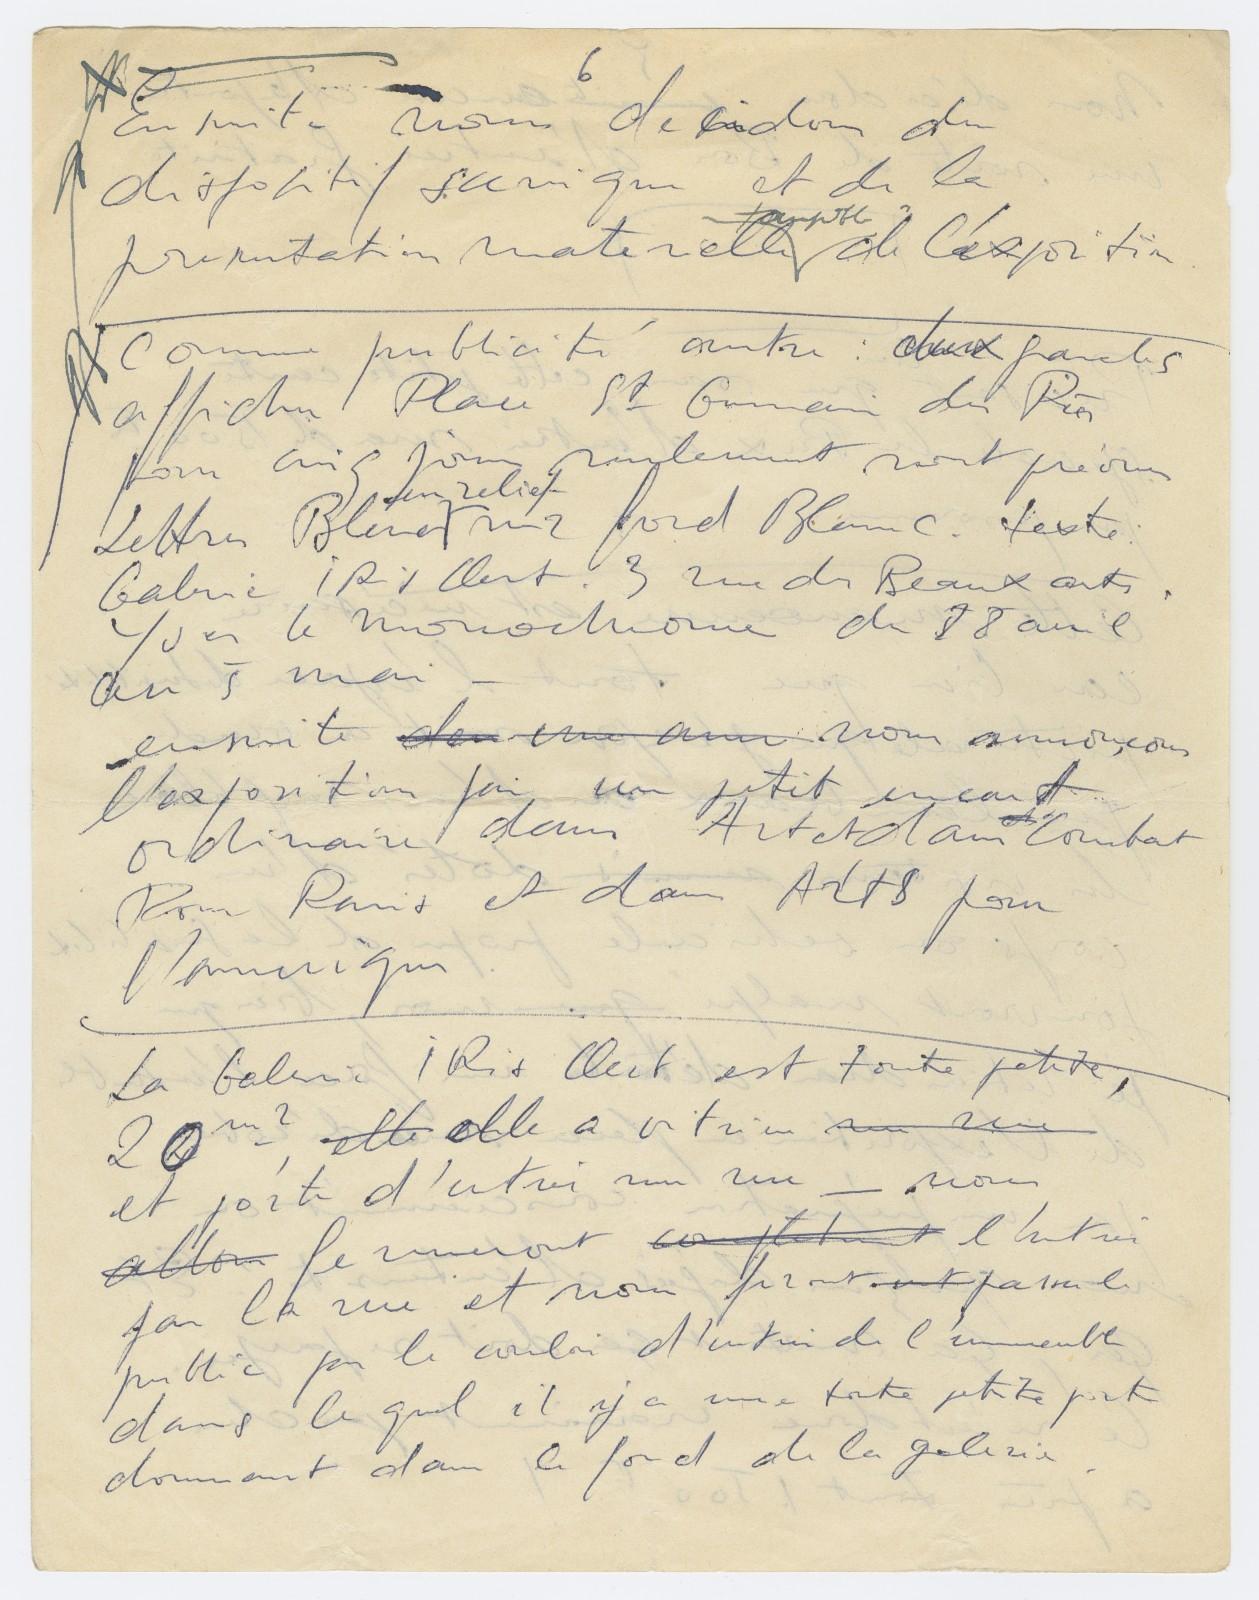 6
Ensuite nous decidons du
dispositif scenique et de la
tangible ?
presentation materielle de l'exposition
Comme publicité outre : deux grandes
affiches Place St Germain des Près
pour cinq jours seulement sont prévues
en relief
Lettres Bleues sur fond Blanc. texte :
Galerie IRis Clert. 3 rue des Beaux arts.
Yves le monochrome du 28 avril
au 5 mai -
ensuite nous annonçons
l'exposition par un petit encart
ordinaire dans Art et dans Combat
Pour Paris et dans ARtS pour
l'amerique
La Galerie IRis Clert est toute petite,
20 m2, elle elle a vitrine sur rue
et porte d'entrée sur rue — nous
allons fermeront completement l'entrée
par la rue et nous feront passer le
public par le couloir d'entrée de l'immeuble
dans le quel il y a une toute petite porte
donnant dans le fond de la galerie.